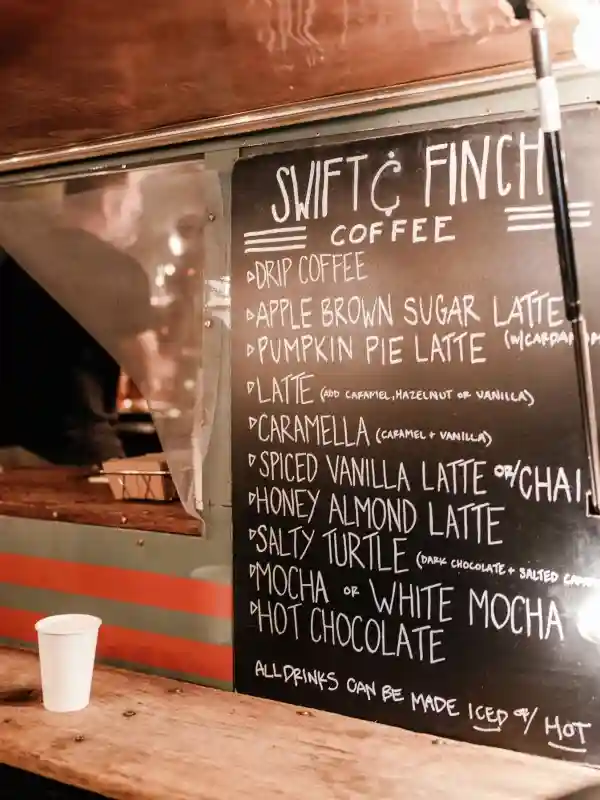 SWIFT & FINCH
COFFEE
DRIP COFFEE
APPLE BROWN SUGAR LATTE
PUMPKIN PIE LATTE (W/CARDAMOM
LATTE (ADD CARAMEL, HAZELNUT OR VANILLA)
CARAMELLA (CARAMEL + VANILLA)
SPICED VANILLA LATTE OR/CHAI
HONEY ALMOND LATTE
SALTY TURTLE (DARK CHOCOLATE + SALTED
MOCHA OR WHITE MOCHA
HOT CHOCOLATE
ALL DRINKS CAN BE MADE ICED OR/ HOT